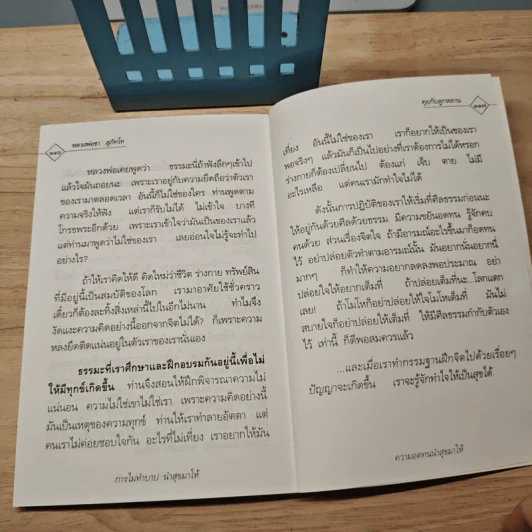 ๑๑๖
หลวงพ่อชา สุภัทโท
หลวงพ่อเคยพูดว่า ธรรมะนี่ถ้าฟังลึกๆเข้าไป
แล้วใจมันถอยนะ เพราะเราอยู่กับความยึดถือว่าตัวเรา
ของเรามาตลอดเวลา อันนี้ก็ไม่ใช่ของใคร ท่านพูดตาม
ความจริงให้ฟัง แต่เราก็รับไม่ได้ ไม่เข้าใจ บางที
โกรธพระอีกด้วย เพราะเราเข้าใจว่ามันเป็นของเราแล้ว
แต่ท่านมาพูดว่าไม่ใช่ของเรา เลยอ่อนใจไม่รู้จะทำไป
อย่างไร?
ถ้าให้เราคิดให้ดี คิดใหม่ว่าชีวิต ร่างกาย ทรัพย์สิน
ที่มีอยู่นี้เป็นสมบัติของโลก เรามาอาศัยใช้ชั่วคราว
เดี๋ยวก็ต้องละทิ้งสิ่งเหล่านี้ไปในอีกไม่นาน ทำไมจึง
งัดแงะความคิดอย่างนี้ออกจากจิตไม่ได้? ก็เพราะความ
หลงยึดติดแน่นอยู่ในตัวเราของเรานั่นเอง
ธรรมะที่เราศึกษาและฝึกอบรมกันอยู่นี้เพื่อไม่
ให้มีทุกข์เกิดขึ้น ท่านจึงสอนให้ฝึกพิจารณาความไม่
แน่นอน ความไม่ใช่เขาไม่ใช่เรา เพราะความคิดอย่างนี้
มันเป็นเหตุของความทุกข์ ท่านให้เราทำลายอัตตา แต่
คนเราไม่ค่อยชอบใจกัน อะไรที่ไม่เที่ยง เราอยากให้มัน
การไม่ทำบาป นำสุขมาให้
คุยกับลูกหลาน
๑๑๗
เที่ยง อันนี้ไม่ใช่ของเรา เราก็อยากให้เป็นของเรา
พอจริงๆ แล้วมันก็เป็นไปอย่างที่เราต้องการไม่ได้หรอก
ร่างกายก็ต้องเปลี่ยนไป ต้องแก่ เจ็บ ตาย ไม่มี
อะไรเหลือ แต่คนเรามักทำใจไม่ได้
ดังนั้นการปฏิบัติของเราให้เริ่มที่ศีลธรรมก่อนนะ
ให้อยู่กันด้วยศีลด้วยธรรม มีความขยันอดทน รู้จักคบ
คนด้วย ส่วนเรื่องจิตใจ ถ้ามีอารมณ์อะไรขึ้นมาก็อดทน
ไว้ อย่าปล่อยตัวทำตามอารมณ์นั้น มันอยากนั่นอยากนี่
มากๆ ก็ทำให้ความอยากลดลงพอประมาณ อย่า
ปล่อยให้อยากเต็มที่ ถ้าปล่อยเต็มที่นะ...โลกแตก
เลย! ถ้าโมโหก็อย่าปล่อยให้ใจโมโหเต็มที่ มันไม่
สบายใจก็อย่าปล่อยให้เต็มที่ ให้มีศีลธรรมกำกับตัวเอง
ไว้ เท่านี้ ก็ดีพอสมควรแล้ว
...และเมื่อเราทำกรรมฐานฝึกจิตไปด้วยเรื่อยๆ
ปัญญาจะเกิดขึ้น เราจะรู้จักทำใจให้เป็นสุขได้
ความอดทนนำสุขมาให้